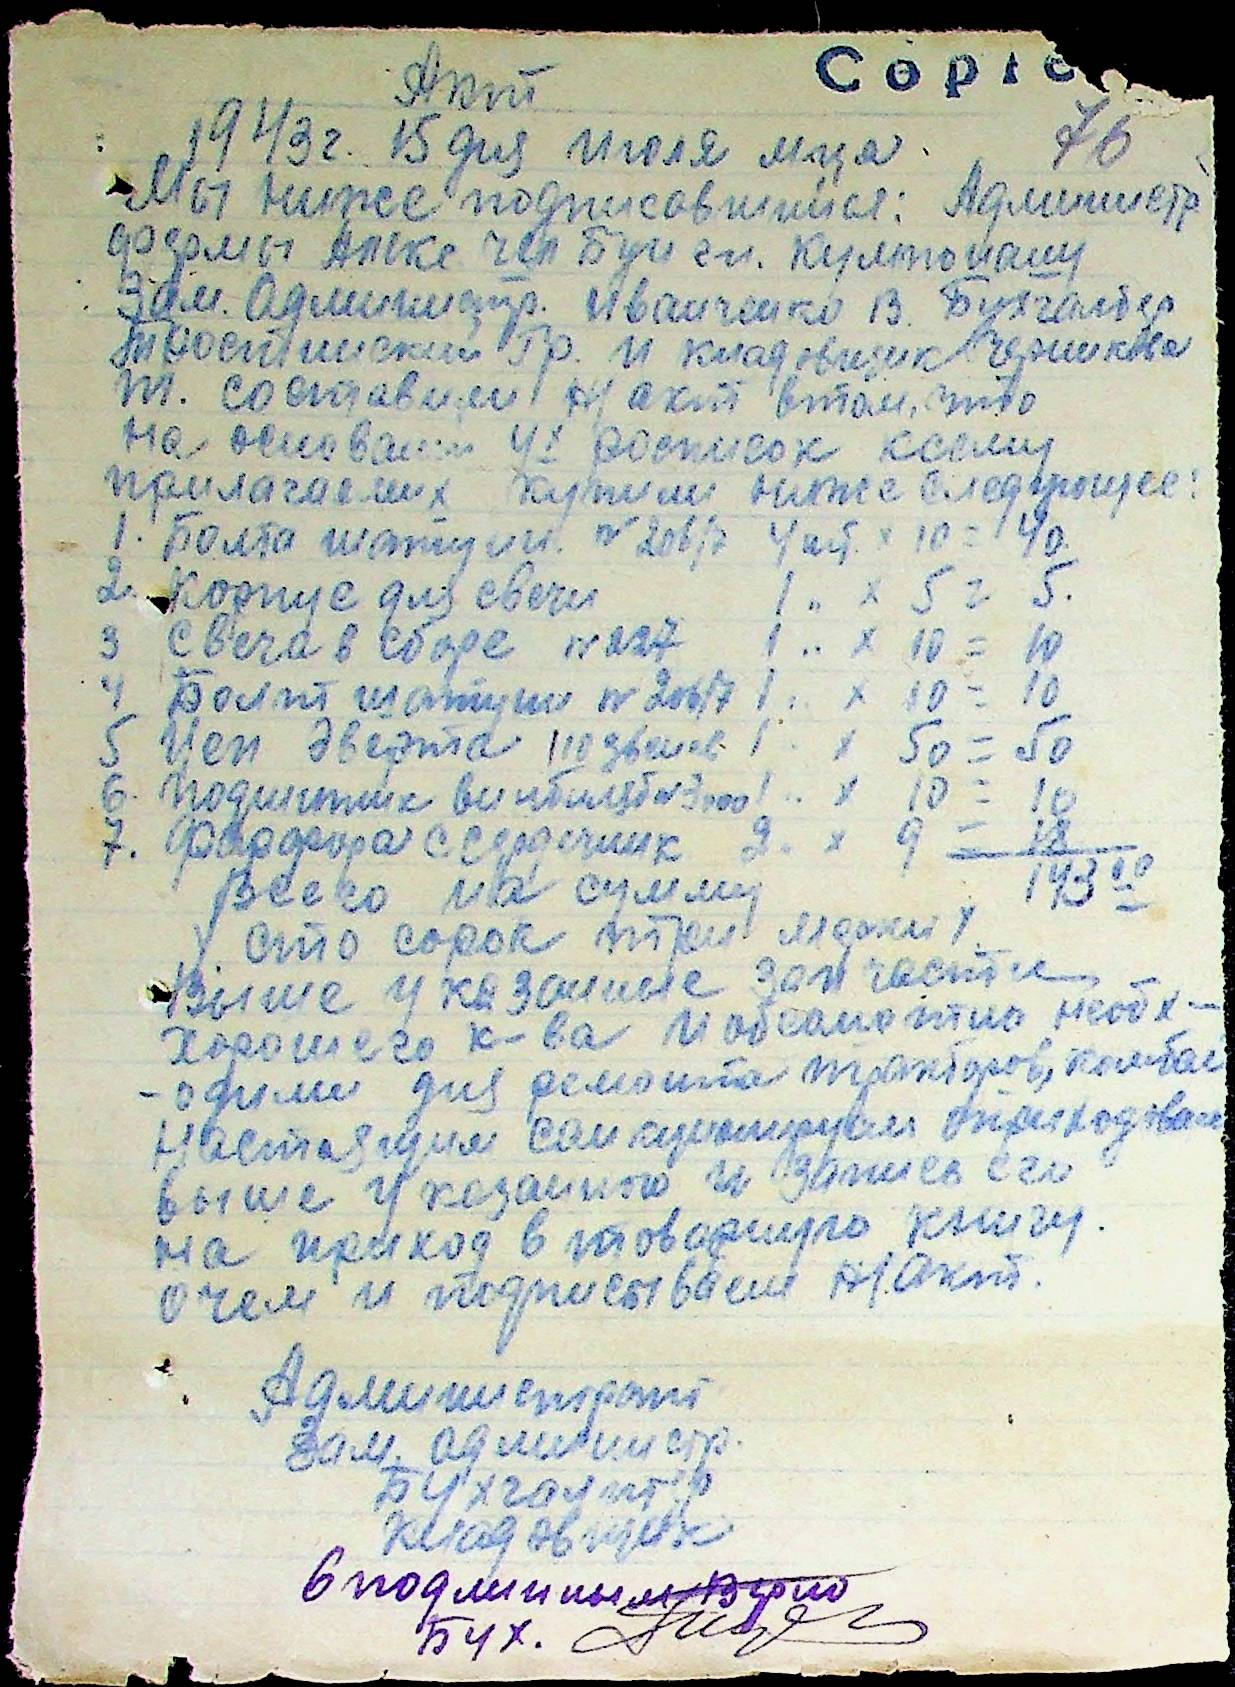 Copie
76
Акт
1943 г. 15 дня июля м-ца.
Мы ниже подписавшийся: Администр.
фермы
Зам. Администр. Иванченко В. Бухгалтер
Гр. и кладовщик Черникова
т. составили н/акт в том, что
на основании 4х росписок ксему
прилагаемих купили ниже следующее:
1. Болта шатун. № 206/7 4 шт. х 10 = 40.
2. Корпус для свечи 1 " х 5 = 5.
3 Свеча в сборе № 227 1 " х 10 = 10
4 Болт шатун № 206/7 1 " х 10 = 10
5 Цеп Эверта 110 звен. 1 " х 50 = 50
6. Подшипник 1 " х 10 = 10
7. Фарфора с сердечник 2 " х 9 = 18
Всего на сумму 143 00
Сто сорок три марки.
Выше указанные зап части
хорошего к-ва и абсолютно необх-
-одими для ремонта тракторов, комбай
Настоящим санкционируем оприходован
выше указанного и запись его
на приход в товарную книгу.
О чем и подписываем н/акт.
Администрат
Зам. администр.
Бухгалтер
Кладовщик
С подлинным Верно
Бух.